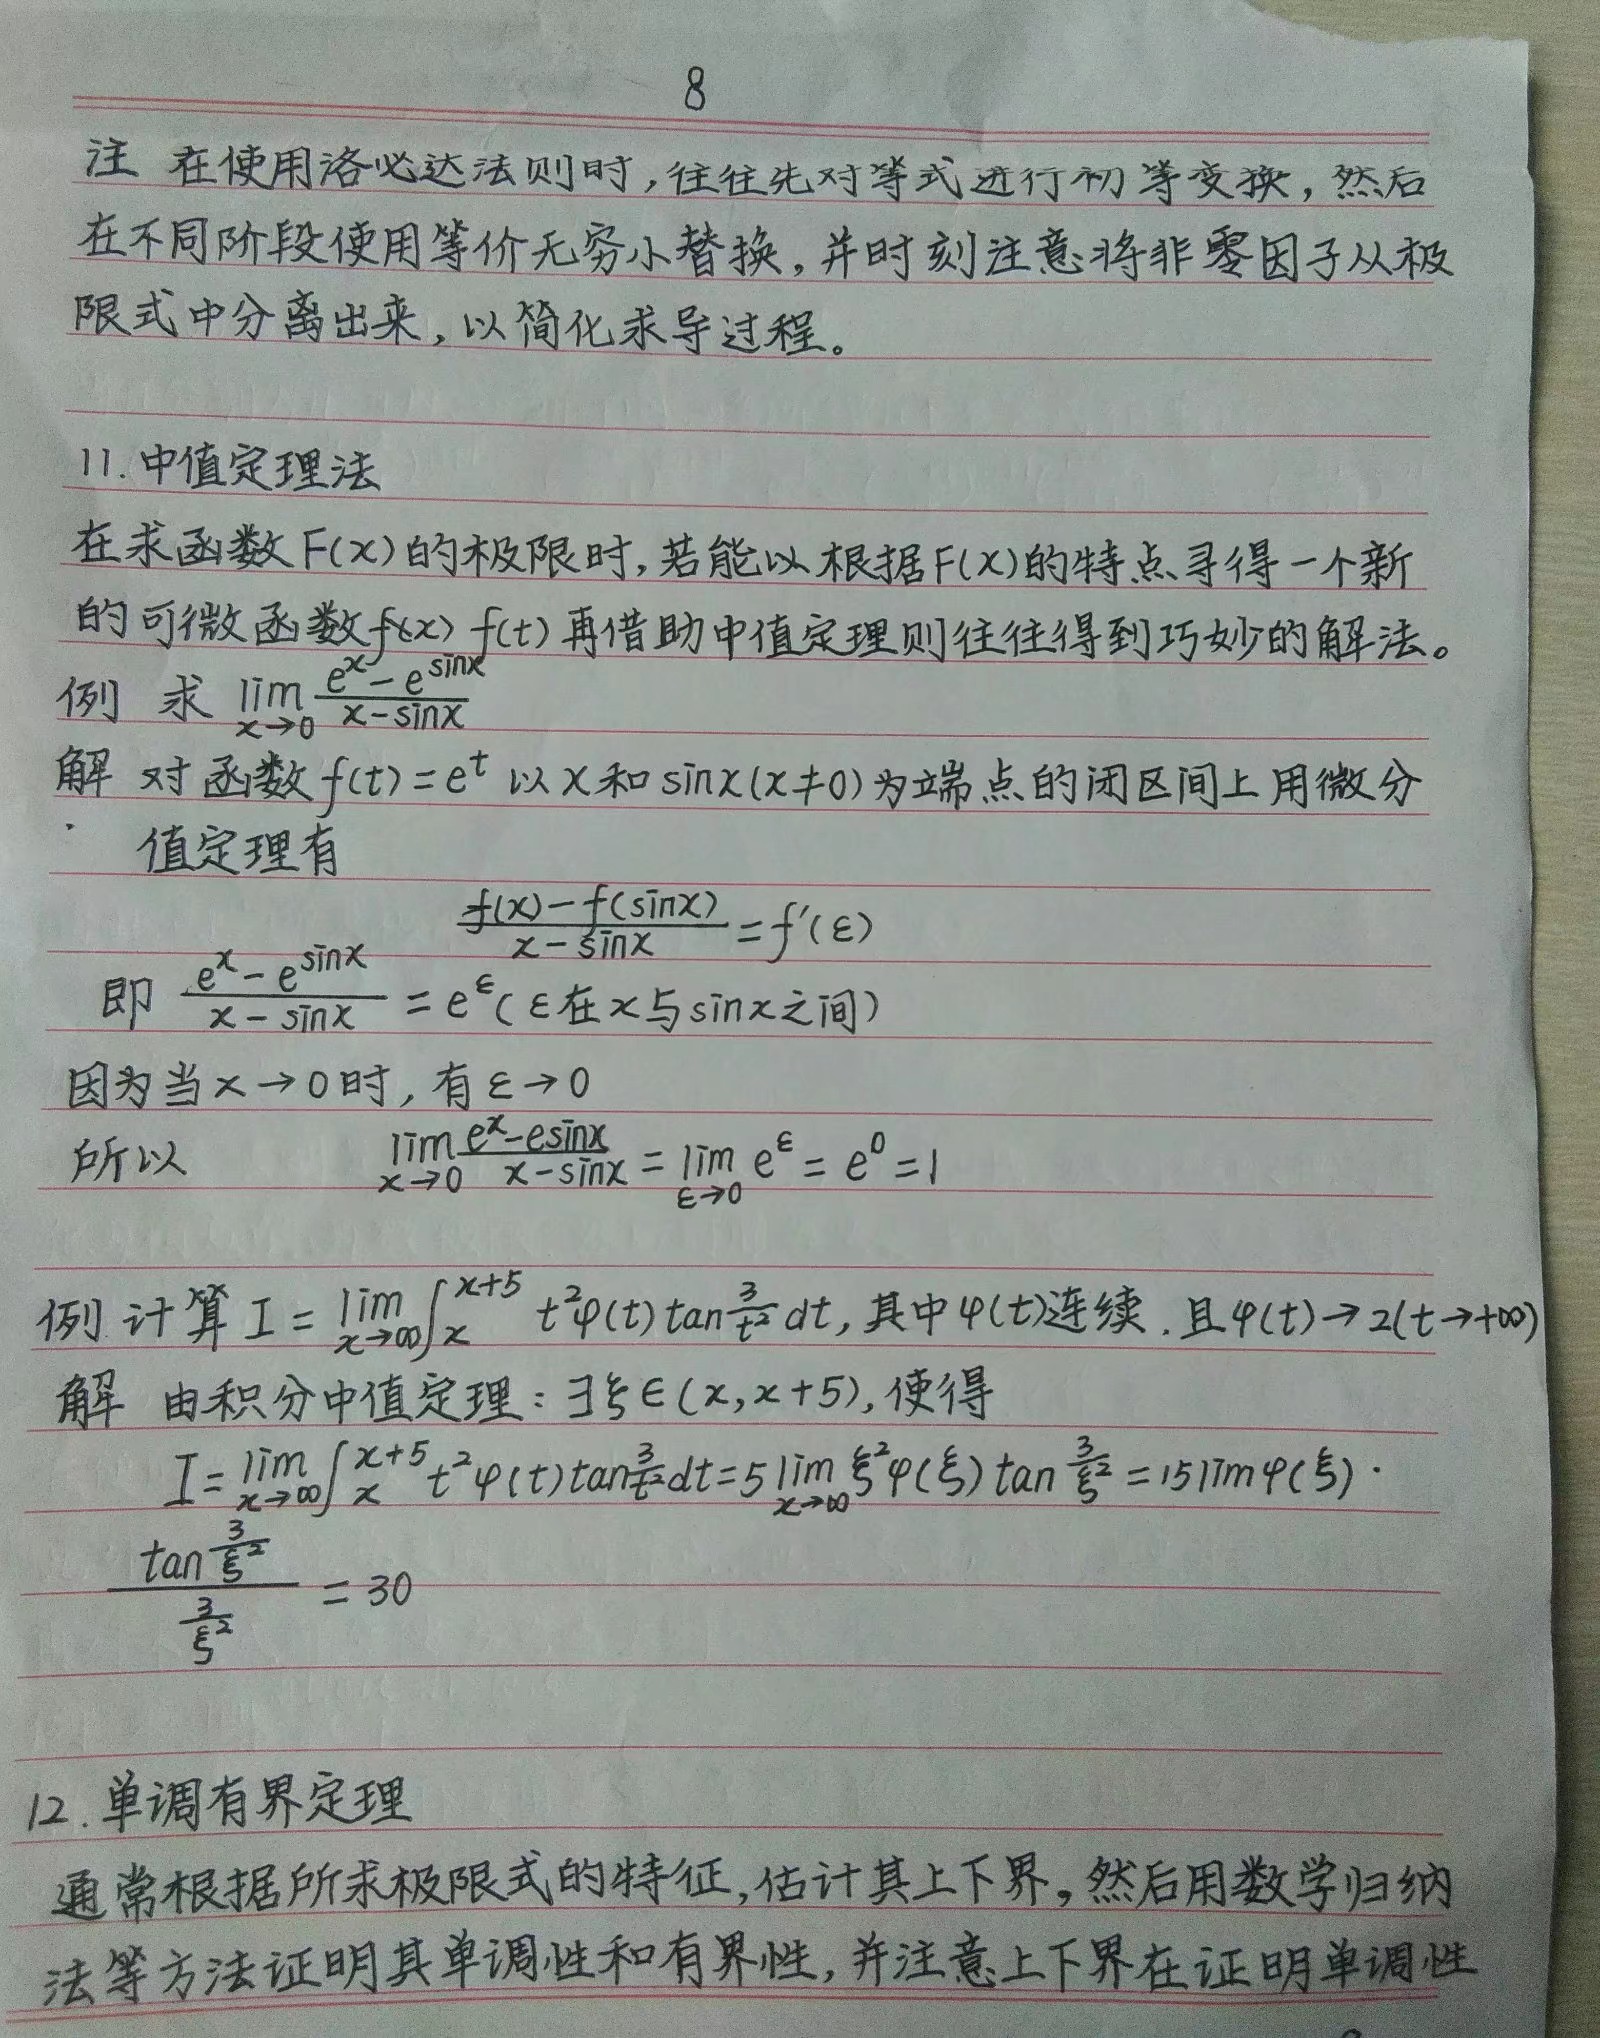 8
注 在使用洛必达法则时,往往先对等式进行初等变换,然后
在不同阶段使用等价无穷小替换,并时刻注意将非零因子从极
限式中分离出来,以简化求导过程。
11.中值定理法
在求函数F(x)的极限时,若能以根据F(x)的特点寻得一个新
的可微函数f(x) f(t)再借助中值定理则往往得到巧妙的解法。
例 求 \lim_{x→0} \frac{e^x-e^{sinx}}{x-sinx}
解 对函数f(t)=e^t 以x和sinx(x≠0)为端点的闭区间上用微分
值定理有
\frac{f(x)-f(sinx)}{x-sinx}=f'(ε)
即 \frac{e^x-e^{sinx}}{x-sinx}=e^ε(ε在x与sinx之间)
因为当x→0时,有ε→0
所以 \lim_{x→0} \frac{e^x-esinx}{x-sinx}=\lim_{ε→0} e^ε=e^0=1
例 计算 I=\lim_{x→∞}∫_x^{x+5} t^2φ(t)tan\frac{3}{t^2}dt,其中φ(t)连续.且φ(t)→2(t→+∞)
解 由积分中值定理:∃ξ∈(x,x+5),使得
I=\lim_{x→∞}∫_x^{x+5} t^2φ(t)tan\frac{3}{t^2}dt=5\lim_{x→∞} ξ^2φ(ξ)tan\frac{3}{ξ^2}=15limφ(ξ)·
\frac{tan\frac{3}{ξ^2}}{\frac{3}{ξ^2}}=30
12.单调有界定理
通常根据所求极限式的特征,估计其上下界。然后用数学归纳
法等方法证明其单调性和有界性,并注意上下界在证明单调性